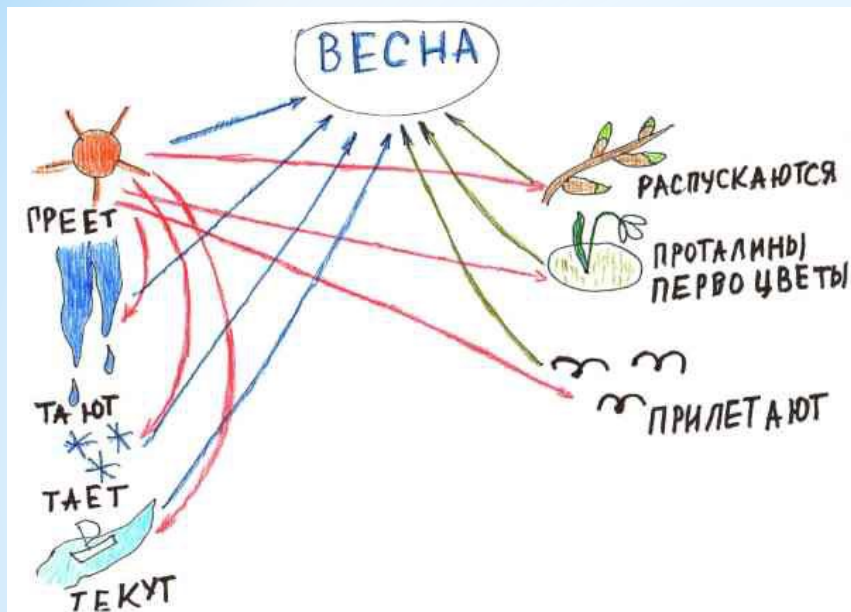 ВЕСНА
ГРЕЕТ
ТАЮТ
ТАЕТ
ТЕКУТ
РАСПУСКАЮТСЯ
ПРОТАЛИНЫ
ПЕРВОЦВЕТЫ
ПРИЛЕТАЮТ